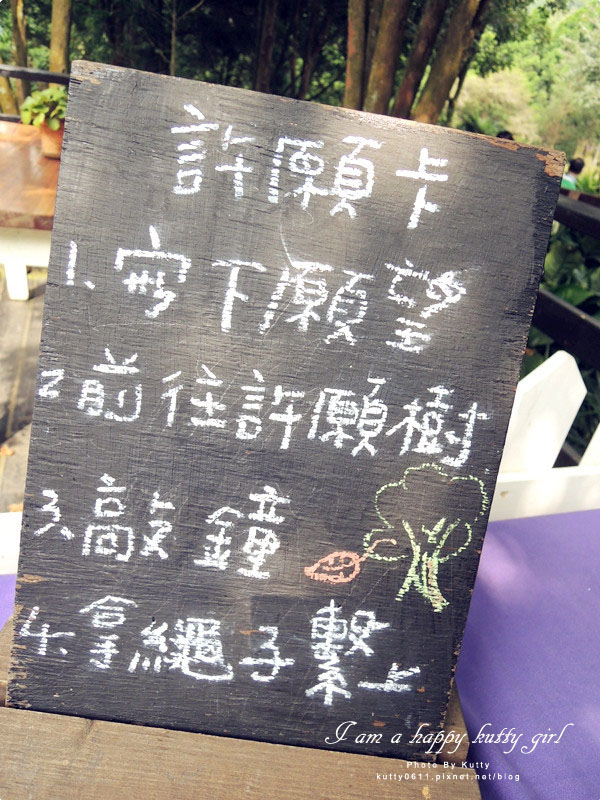 許願卡
1、寫下願望
2 前往許願樹
3、敲鐘
4、拿繩子繫上
I am a happy kutty girl
Photo By Kutty
kutty0611.pixnet.net/blog